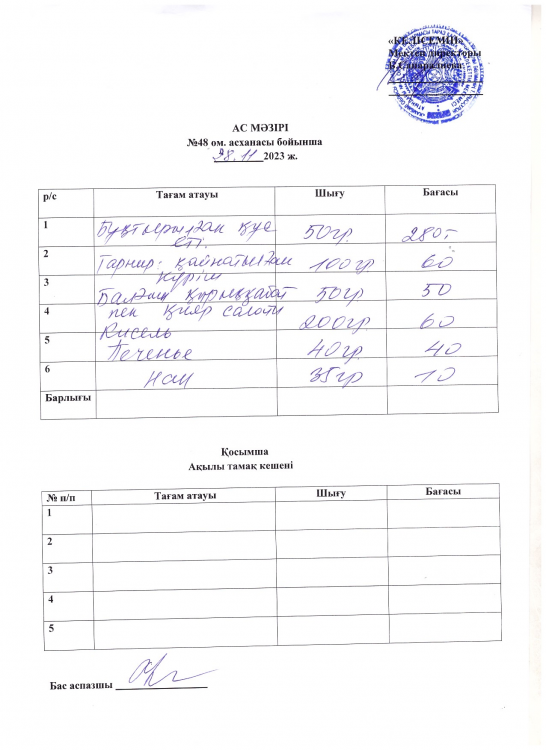 «КЕЛІСЕМІН»
Мектеп директоры
АС МӘЗІРІ
№48 ом. асханасы бойынша
28.11 2023 ж.
р/с Тағам атауы Шығу Бағасы
1 Бұқтырылған құс еті. 50гр. 280т
2 Гарнир: қайнатылған күріш 100гр. 60
3 Балғын қырыққабат 50гр 50
4 пен қияр салаты
Кисель 200гр. 60
5 Печенье 40гр 40
6 Нан 35гр 10
Барлығы
Қосымша
Ақылы тамақ кешені
№ п/п Тағам атауы Шығу Бағасы
1
2
3
4
5
Бас аспазшы